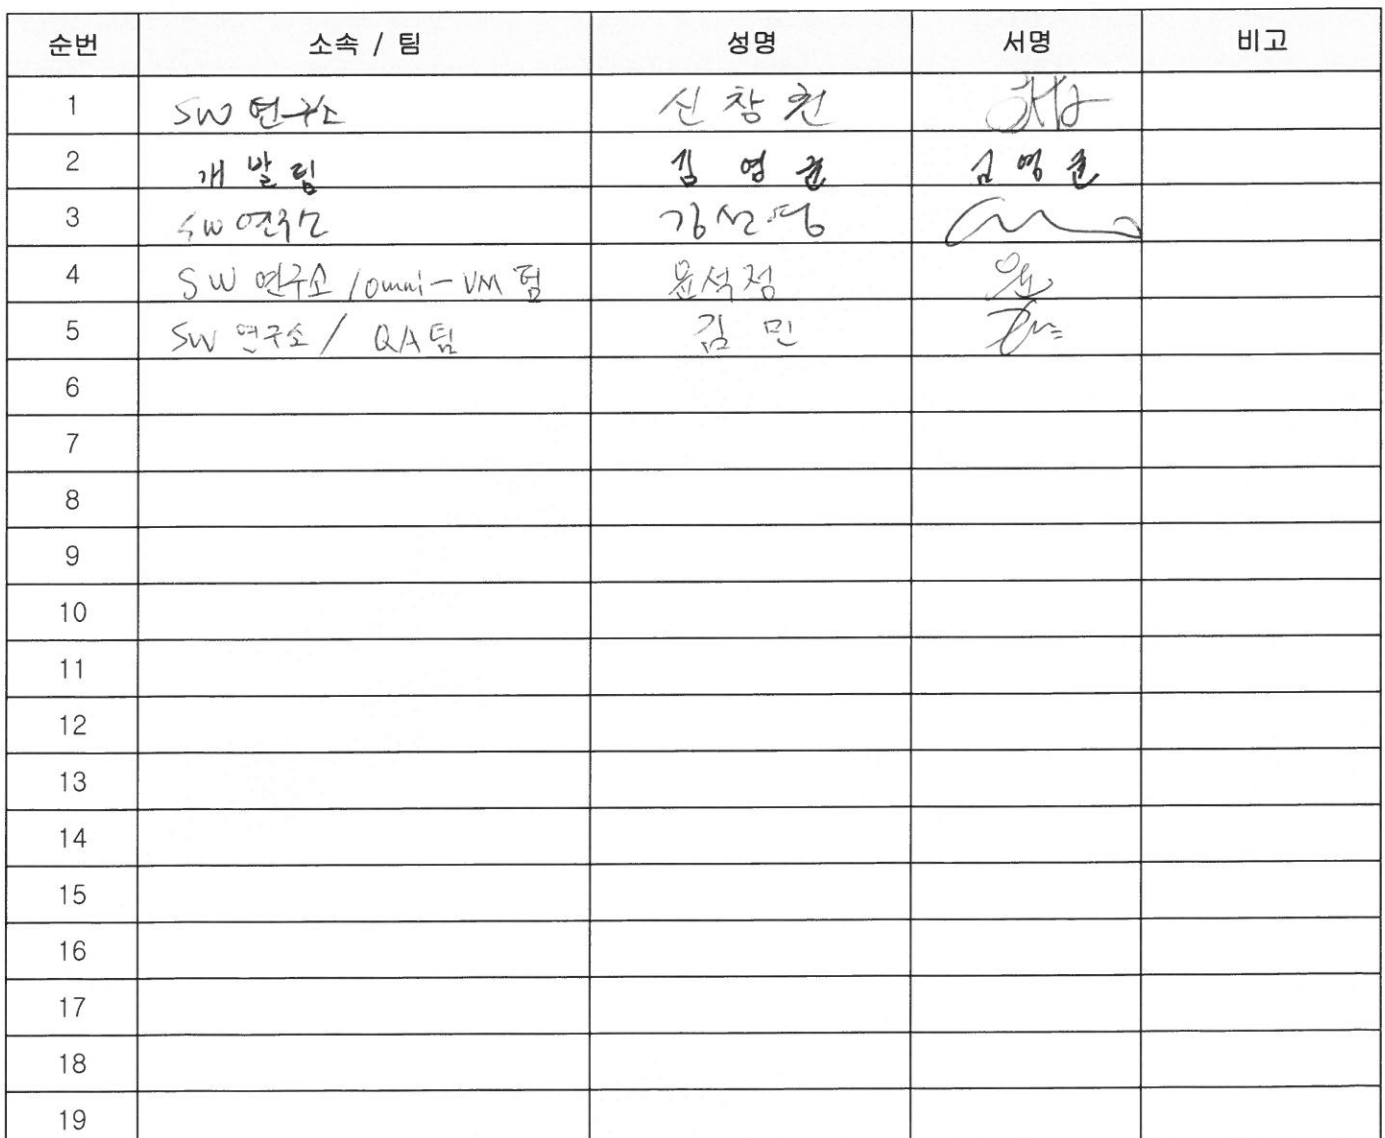 순번 소속 / 팀 성명 서명 비고
1 SW 연구소 신창헌
2 개발팀 김영권 김영권
3 SW 연구소
4 SW 연구소 / Omni-VM 팀 윤석정
5 SW 연구소 / QA팀 김민
6
7
8
9
10
11
12
13
14
15
16
17
18
19